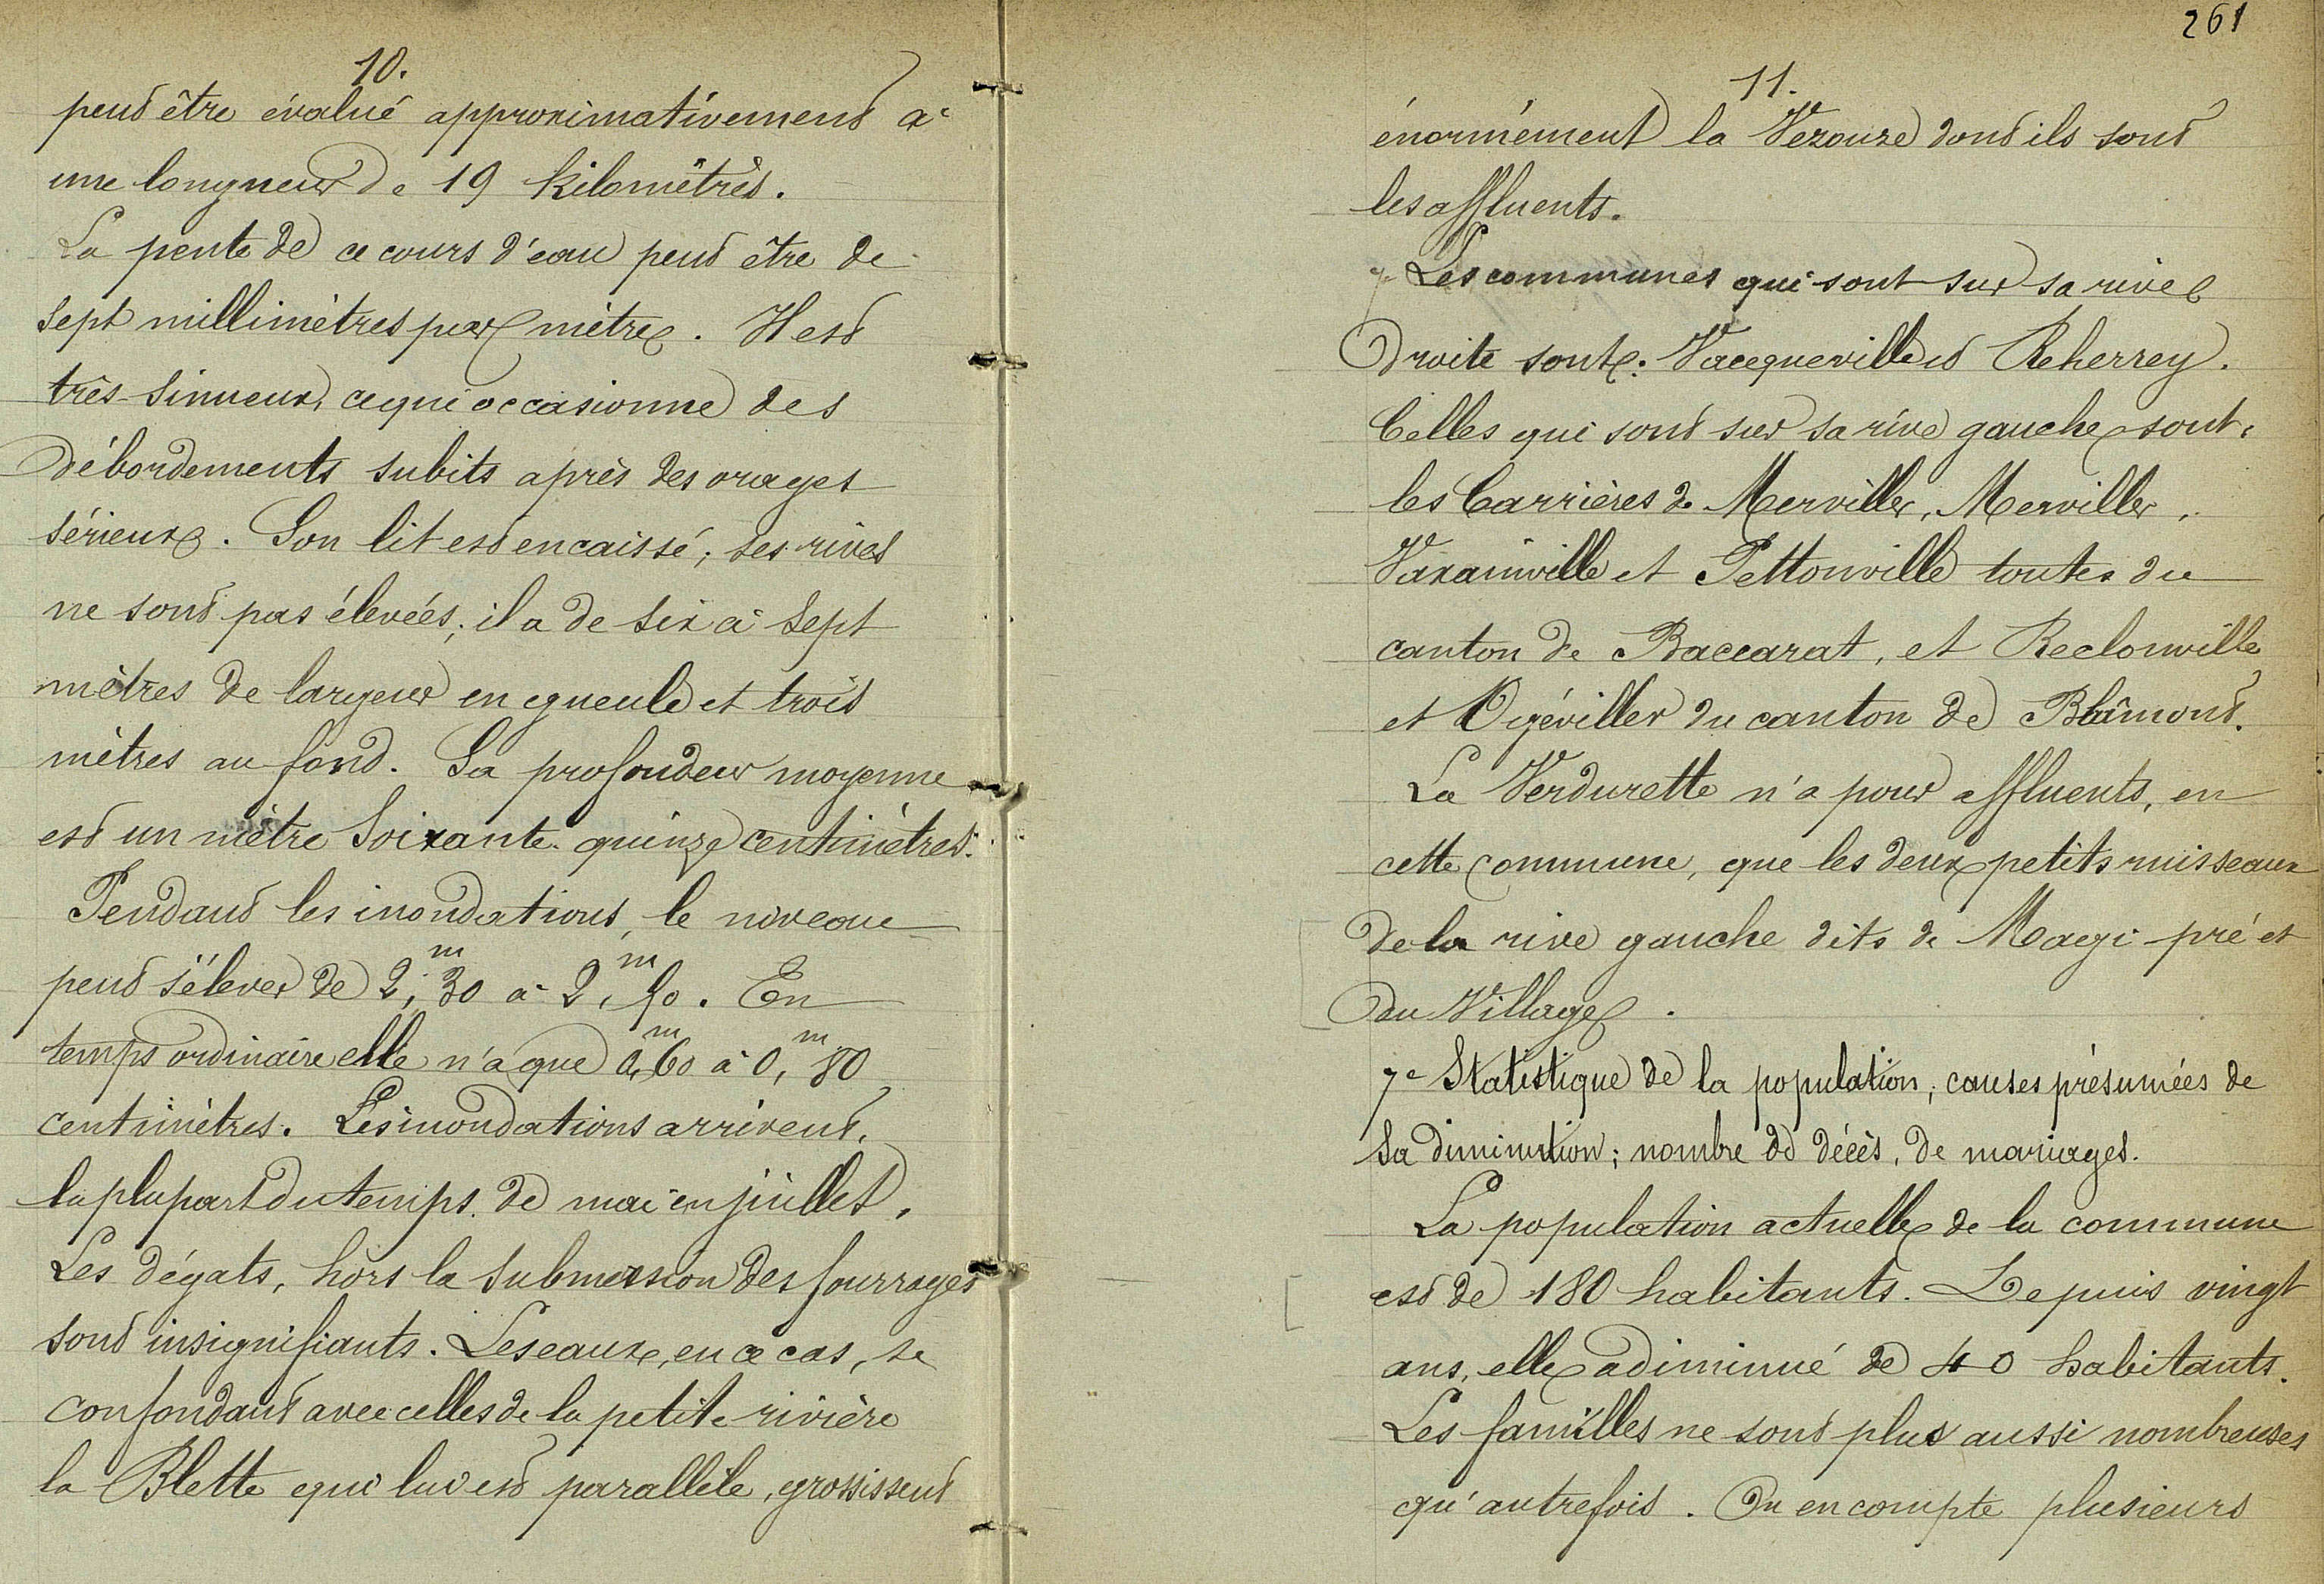 10.
peut être évalué approximativement à
une longueur de 19 kilomètres.
La pente de ce cours d'eau peut être de
sept millimètres par mètre. Il est
très-sinueux, ce qui occasionne des
débordements subits après des orages
sérieux. Son lit est encaissé; ses rives
ne sont pas élevées; il a de six à sept
mètres de largeur en gueule et trois
mètres au fond. Sa profondeur moyenne
est un mètre soixante-quinze centimètres.
Pendant les inondations, le niveau
peut s'élever de 2,m30 à 2,m50. En
temps ordinaire elle n'a que 0,m60 à 0,m80
centimètres. Les inondations arrivent,
la plupart du temps, de mai en juillet.
Les dégats, hors la submersion des fourrages
sont insignifiants. Les eaux, en ce cas, se
confondant avec celles de la petite rivière
la Blette qui lui est parallèle, grossissent
261
11.
énormément la Vezouze dont ils sont
les affluents.
Les communes qui sont sur sa rive
droite sont: Vacqueville et Reherrey.
Celles qui sont sur sa rive gauche sont:
les Carrières de Merviller, Merviller,
Vaxainville et Pettonville toutes du
canton de Baccarat, et Reclonville
et Ogéviller du canton de Blâmont.
La Verdurette n'a pour affluents, en
cette commune, que les deux petits ruisseaux
de la rive gauche dits de Magi-pré et
du Village.
7e Statistique de la population; causes présumées de
sa diminution; nombre de décès, de mariages.
La population actuelle de la commune
est de 180 habitants. Depuis vingt
ans, elle a diminué de 40 habitants.
Les familles ne sont plus aussi nombreuses
qu'autrefois. On en compte plusieurs